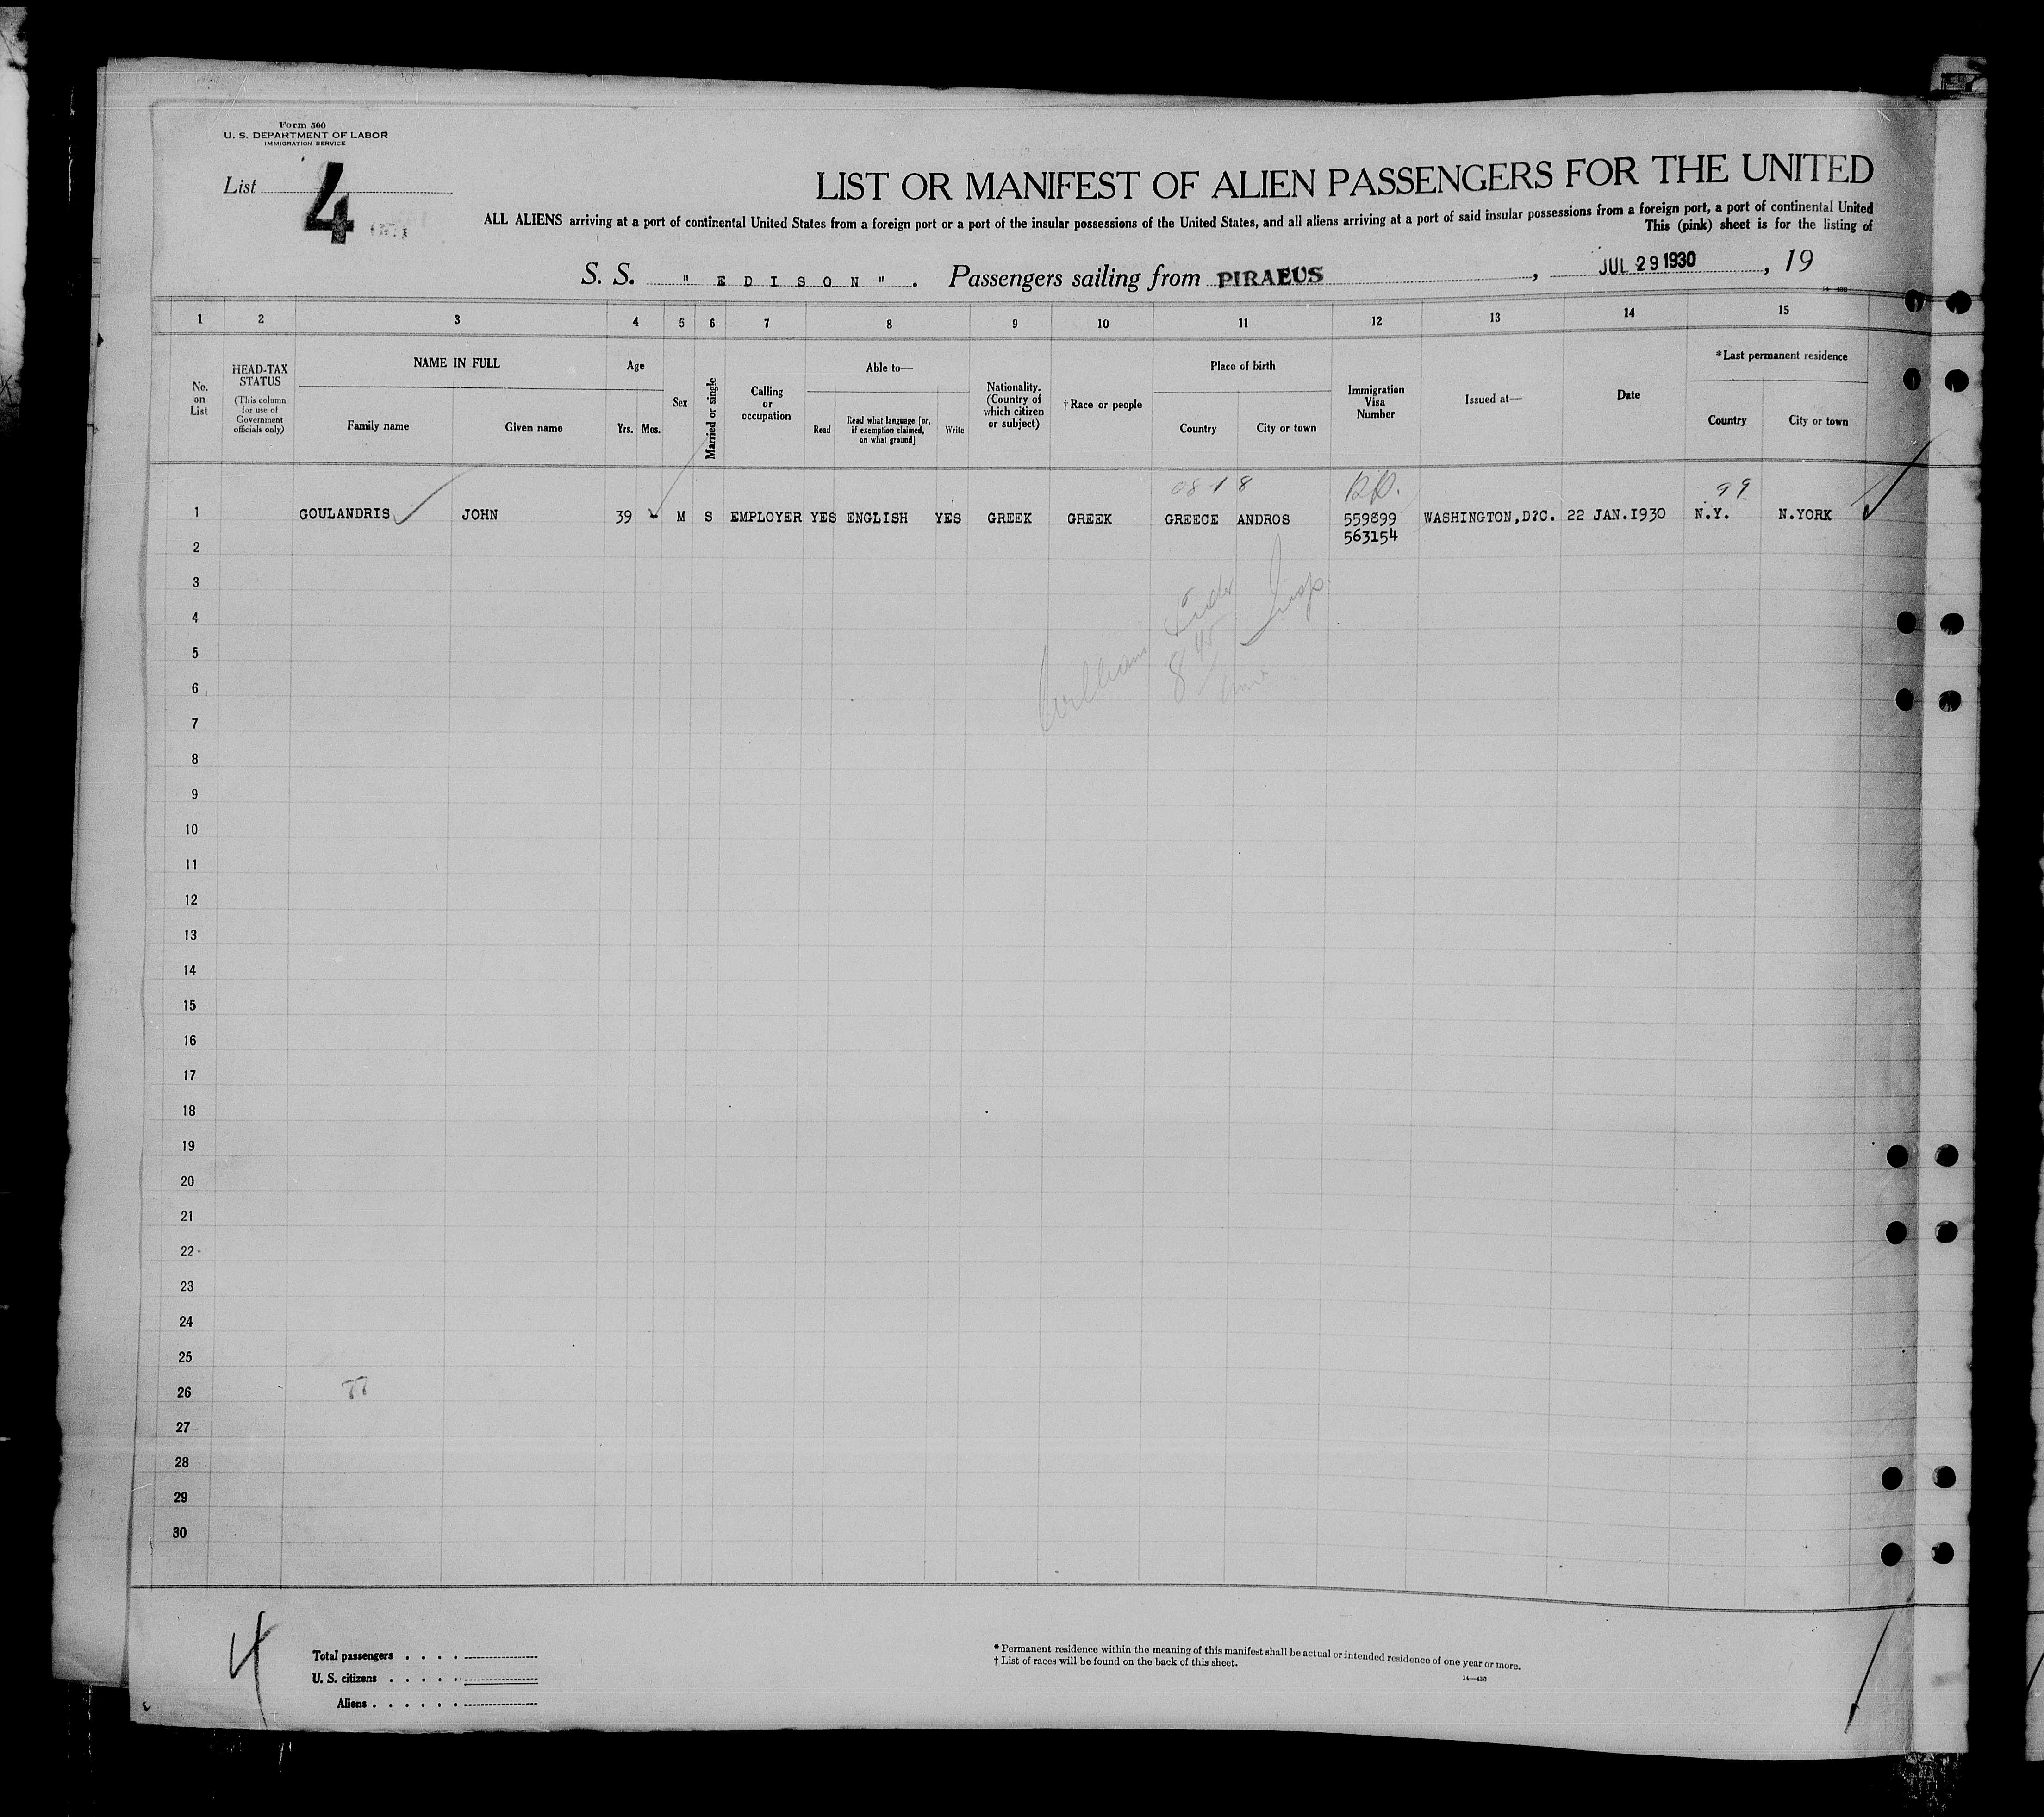 Form 500
U. S. DEPARTMENT OF LABOR
IMMIGRATION SERVICE
List 4
LIST OR MANIFEST OF ALIEN PASSENGERS FOR THE UNITED
ALL ALIENS arriving at a port of continental United States from a foreign port or a port of the insular possessions of the United States, and all aliens arriving at a port of said insular possessions from a foreign port, a port of continental United
This (pink) sheet is for the listing of
S. S. " E D I S O N " . Passengers sailing from PIRAEUS , JUL 29 1930 , 19
1 2 3 4 5 6 7 8 9 10 11 12 13 14 15
No. on List
HEAD-TAX STATUS
(This column for use of Government officials only)
NAME IN FULL
Family name Given name
Age
Yrs. Mos.
Sex
Married or single
Calling or occupation
Able to—
Read
Read what language [or, if exemption claimed, on what ground]
Write
Nationality. (Country of which citizen or subject)
†Race or people
Place of birth
Country City or town
Immigration Visa Number
Issued at—
Date
*Last permanent residence
Country City or town
0818 99
1 GOULANDRIS JOHN 39 M S EMPLOYER YES ENGLISH YES GREEK GREEK GREECE ANDROS 559899 WASHINGTON,D?C. 22 JAN.1930 N.Y. N.YORK
563154
2
3
4
5
6
William Insp.
7
8
9
10
11
12
13
14
15
16
17
18
19
20
21
22
23
24
25
26
77
27
28
29
30
4
Total passengers . . . .
U. S. citizens . . . . .
Aliens . . . . . .
* Permanent residence within the meaning of this manifest shall be actual or intended residence of one year or more.
† List of races will be found on the back of this sheet.
14—430